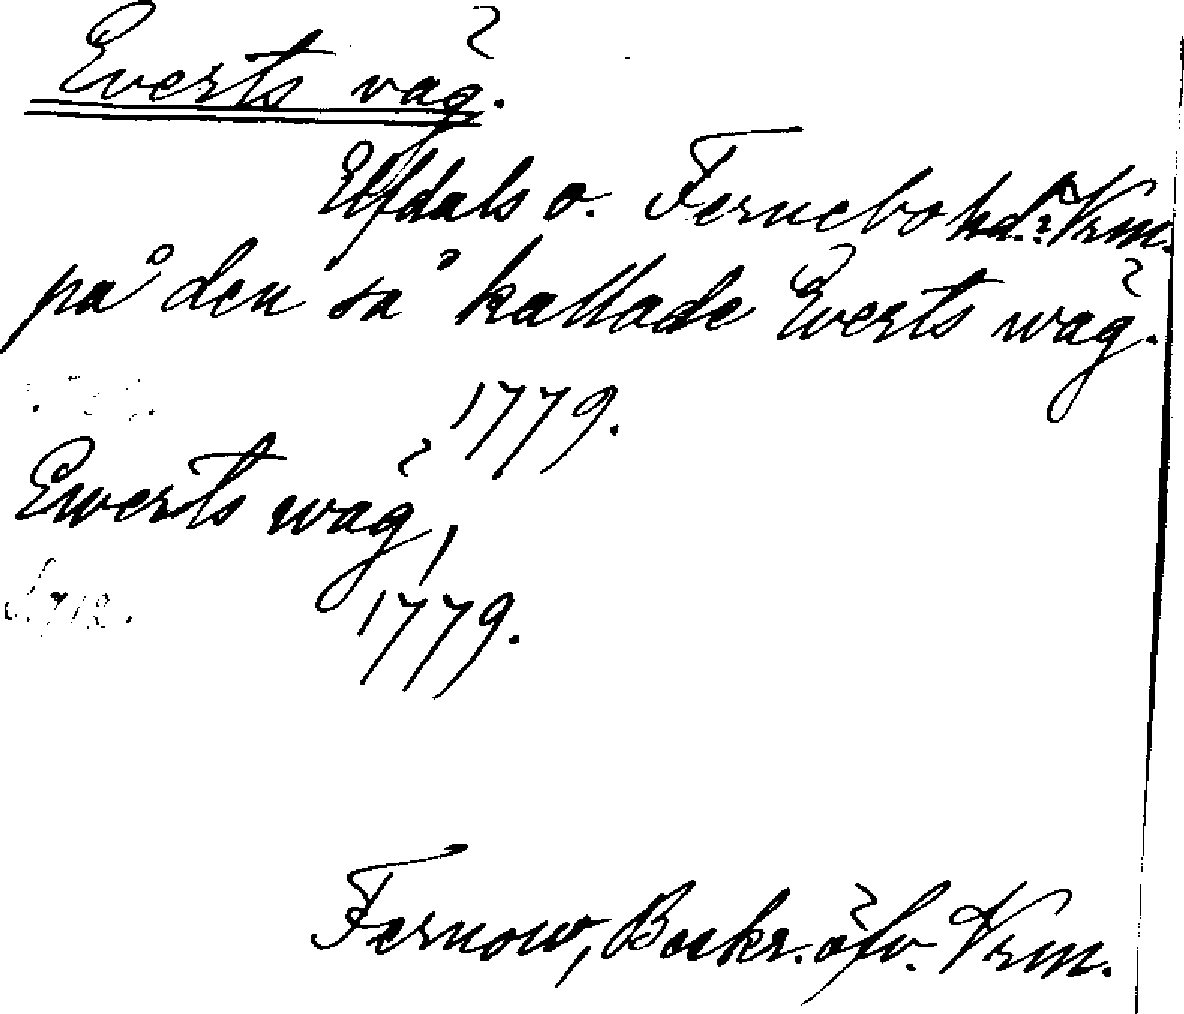 Everts väg.
Elfdals o. Fernebo hd.? Vrm.
på den så kallade Everts wäg.
1779.
Ewerts wäg,
1779.
Fernow, Beskr. öfv. Vrm.